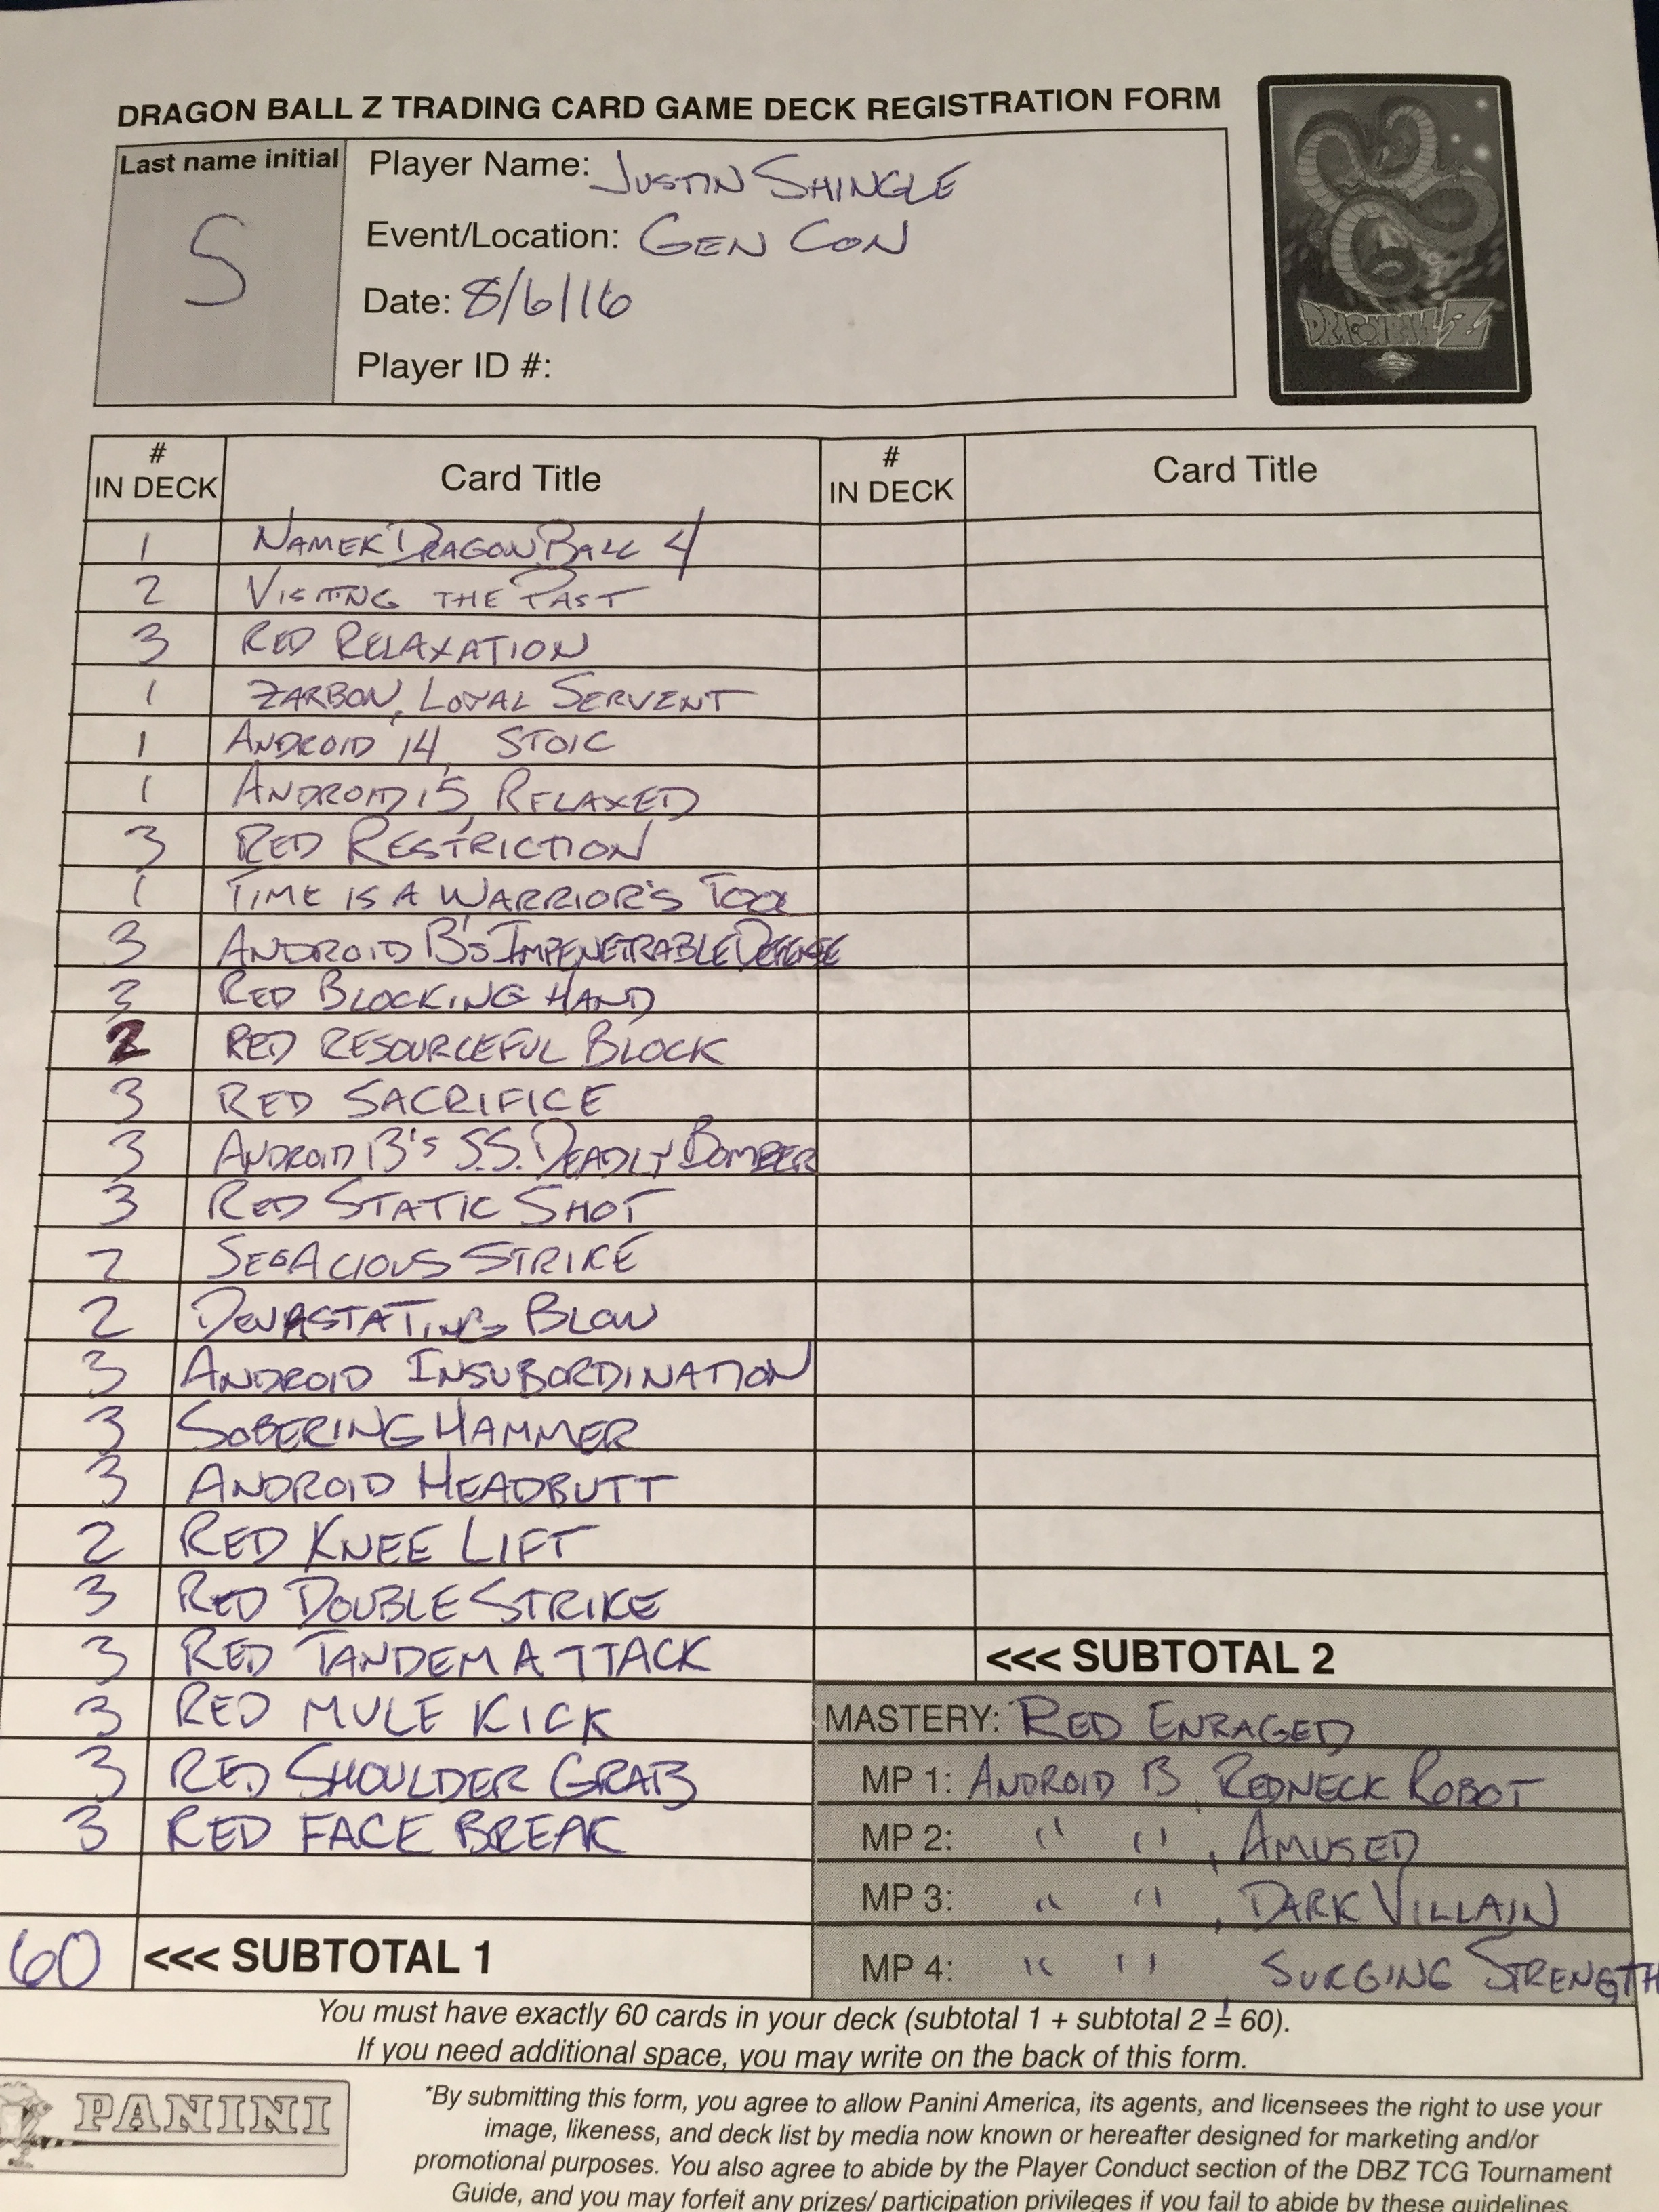 DRAGON BALL Z TRADING CARD GAME DECK REGISTRATION FORM
Last name initial
S
Player Name: JUSTIN SHINGLE
Event/Location: GEN CON
Date: 8/6/16
Player ID #:
DRAGONBALL Z
# IN DECK Card Title # IN DECK Card Title
1 NAMEK DRAGON BALL 4
2 VISITING THE PAST
3 RED RELAXATION
1 ZARBON, LOYAL SERVENT
1 ANDROID 14, STOIC
1 ANDROID 15, RELAXED
3 RED RESTRICTION
1 TIME IS A WARRIOR'S TOOL
3 ANDROID 13'S IMPENETRABLE DEFENSE
3 RED BLOCKING HAND
2 RED RESOURCEFUL BLOCK
3 RED SACRIFICE
3 ANDROID 13'S S.S. DEADLY BOMBER
3 RED STATIC SHOT
2 SEGACIOUS STRIKE
2 DEVASTATING BLOW
3 ANDROID INSUBORDINATION
3 SOBERING HAMMER
3 ANDROID HEADBUTT
2 RED KNEE LIFT
3 RED DOUBLE STRIKE
3 RED TANDEM ATTACK
3 RED MULE KICK
3 RED SHOULDER GRAB
3 RED FACE BREAK
60 <<< SUBTOTAL 1
<<< SUBTOTAL 2
MASTERY: RED ENRAGED
MP 1: ANDROID 13, REDNECK ROBOT
MP 2: " " , AMUSED
MP 3: " " , DARK VILLAIN
MP 4: " " , SURGING STRENGTH
You must have exactly 60 cards in your deck (subtotal 1 + subtotal 2 = 60).
If you need additional space, you may write on the back of this form.
PANINI
*By submitting this form, you agree to allow Panini America, its agents, and licensees the right to use your
image, likeness, and deck list by media now known or hereafter designed for marketing and/or
promotional purposes. You also agree to abide by the Player Conduct section of the DBZ TCG Tournament
Guide, and you may forfeit any prizes/ participation privileges if you fail to abide by these guidelines.